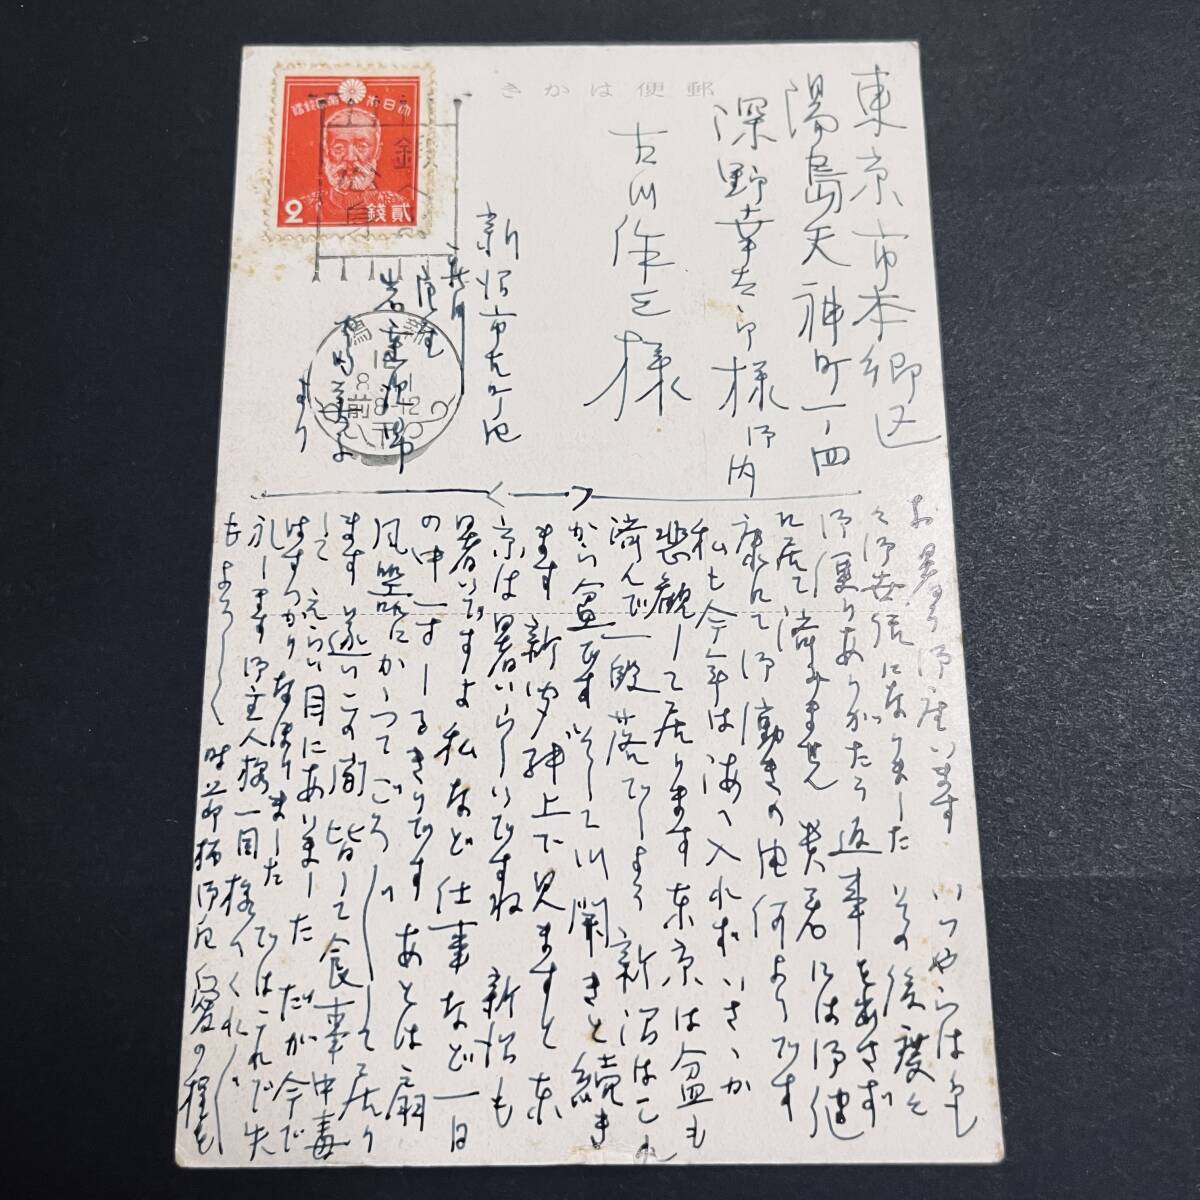 郵便はがき
大日本帝國郵便
2
貳錢
東京市本郷区
湯島天神町一ノ四
深野幸太郎様御内
古川作三様
新潟市
より
お暑う御座います いつやらは
御安信になりました その後度々
御便りありがたう 返事をあげず
に居て済みません 貴君には御健
康にて御働きの由何よりです
私も今年は海へ入れずいさゝか
悲観して居ります 東京は盆も
済んで一段落でしょう 新潟はこれ
から盆です そして川開きと続き
ます 新聞紙上で見ますと東
京は暑いらしいですね 新潟も
暑いですよ 私など仕事など一日
の中一すーるきりです あとは扇
風器にかゝってごろごろして居り
ます 近い中の間皆して食事中毒
して えらい目にあいました だが今で
はすっかりなほりました ではこれで失
礼します 御主人様一同様へくれぐれ
もよろしく 時節柄御自愛の程を